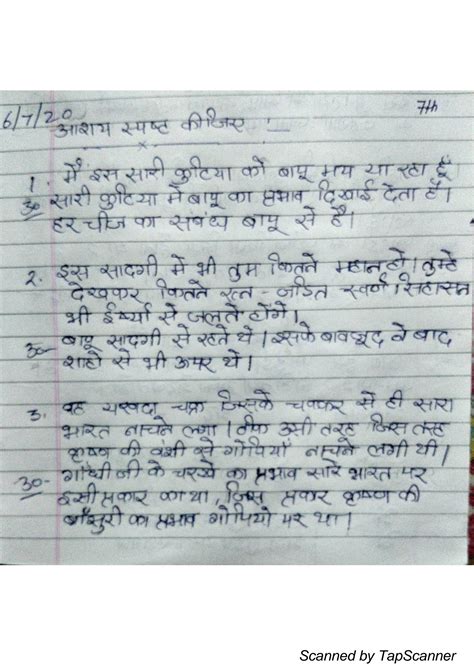 6/7/20
7th
आशय स्पष्ट कीजिए :-
1. मैं इस सारी कुटिया को बापू मय पा रहा हूँ
उ० सारी कुटिया में बापू का प्रभाव दिखाई देता है।
हर चीज का संबंध बापू से है।
2. इस सादगी में भी तुम कितने महान हो। तुम्हे
देखकर कितने रत्न - जडित स्वर्ण सिंहासन
भी ईर्ष्या से जलते होंगे।
उ०- बापू सादगी से रहते थे। इसके बावजूद वे बाद
शाहो से भी ऊपर थे।
3. वह यरवदा चक्र जिसके चक्कर से ही सारा
भारत नाचने लगा। ठीक उसी तरह जिस तरह
कृष्ण की वंशी से गोपियाँ नाचने लगी थी।
उ०- गांधी जी के चरखे का प्रभाव सारे भारत पर
इसी प्रकार का था, जिस प्रकार कृष्ण की
बाँसुरी का प्रभाव गोपियो पर था।
Scanned by TapScanner